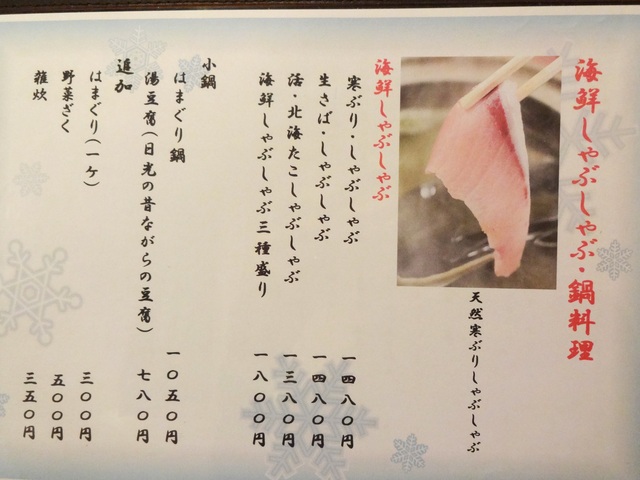 海鮮しゃぶしゃぶ・鍋料理
天然寒ぶりしゃぶしゃぶ
海鮮しゃぶしゃぶ
寒ぶり・しゃぶしゃぶ 一四八〇円
生さば・しゃぶしゃぶ 一四八〇円
活・北海たこしゃぶしゃぶ 一三八〇円
海鮮しゃぶしゃぶ三種盛り 一八〇〇円
小鍋
はまぐり鍋 一〇五〇円
湯豆腐(日光の昔ながらの豆腐) 七八〇円
追加
はまぐり(一ヶ) 三〇〇円
野菜ざく 五〇〇円
雑炊 三五〇円